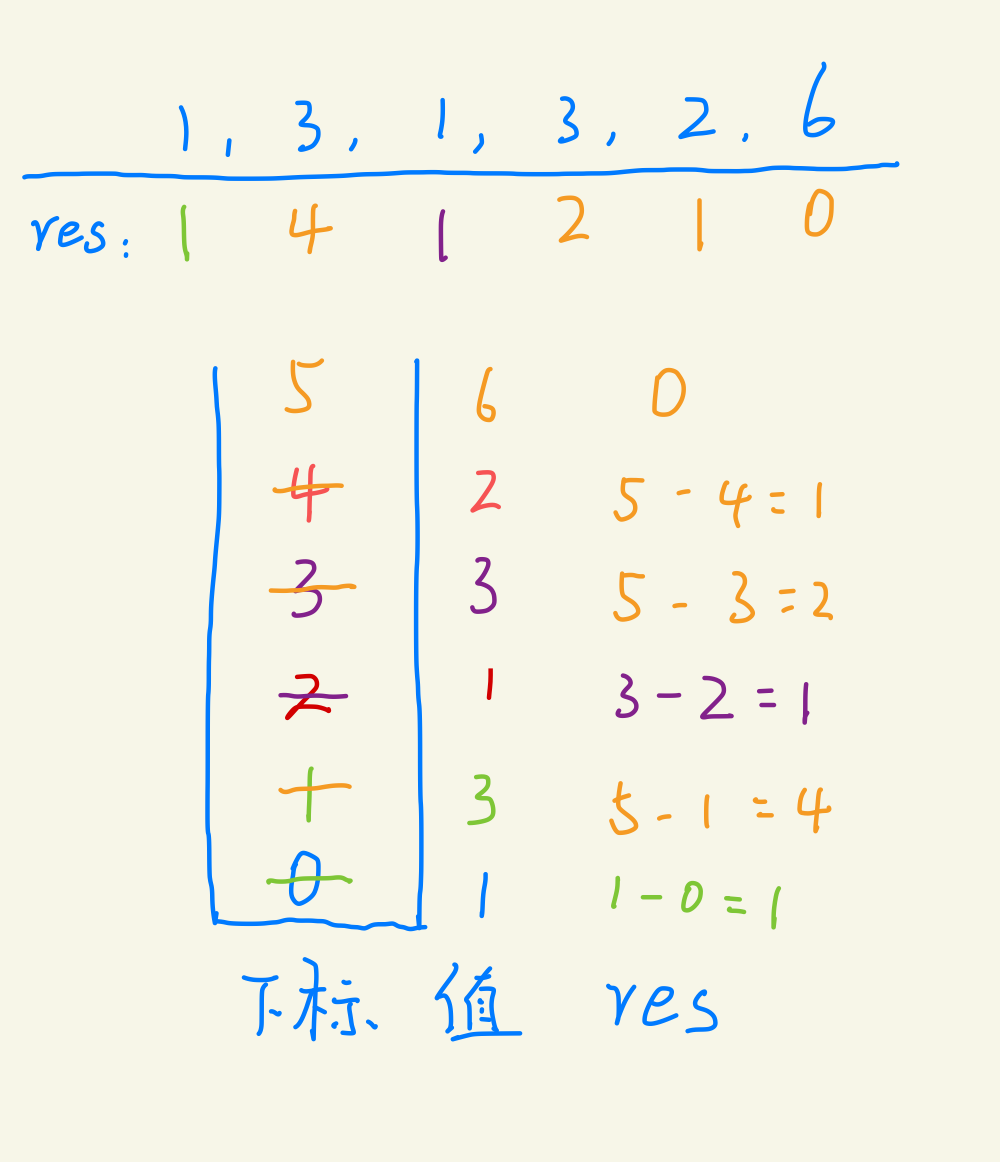 1, 3, 1, 3, 2, 6
res: 1 4 1 2 1 0
5 6 0
4 2 5-4=1
3 3 5-3=2
2 1 3-2=1
1 3 5-1=4
0 1 1-0=1
下标 值 res